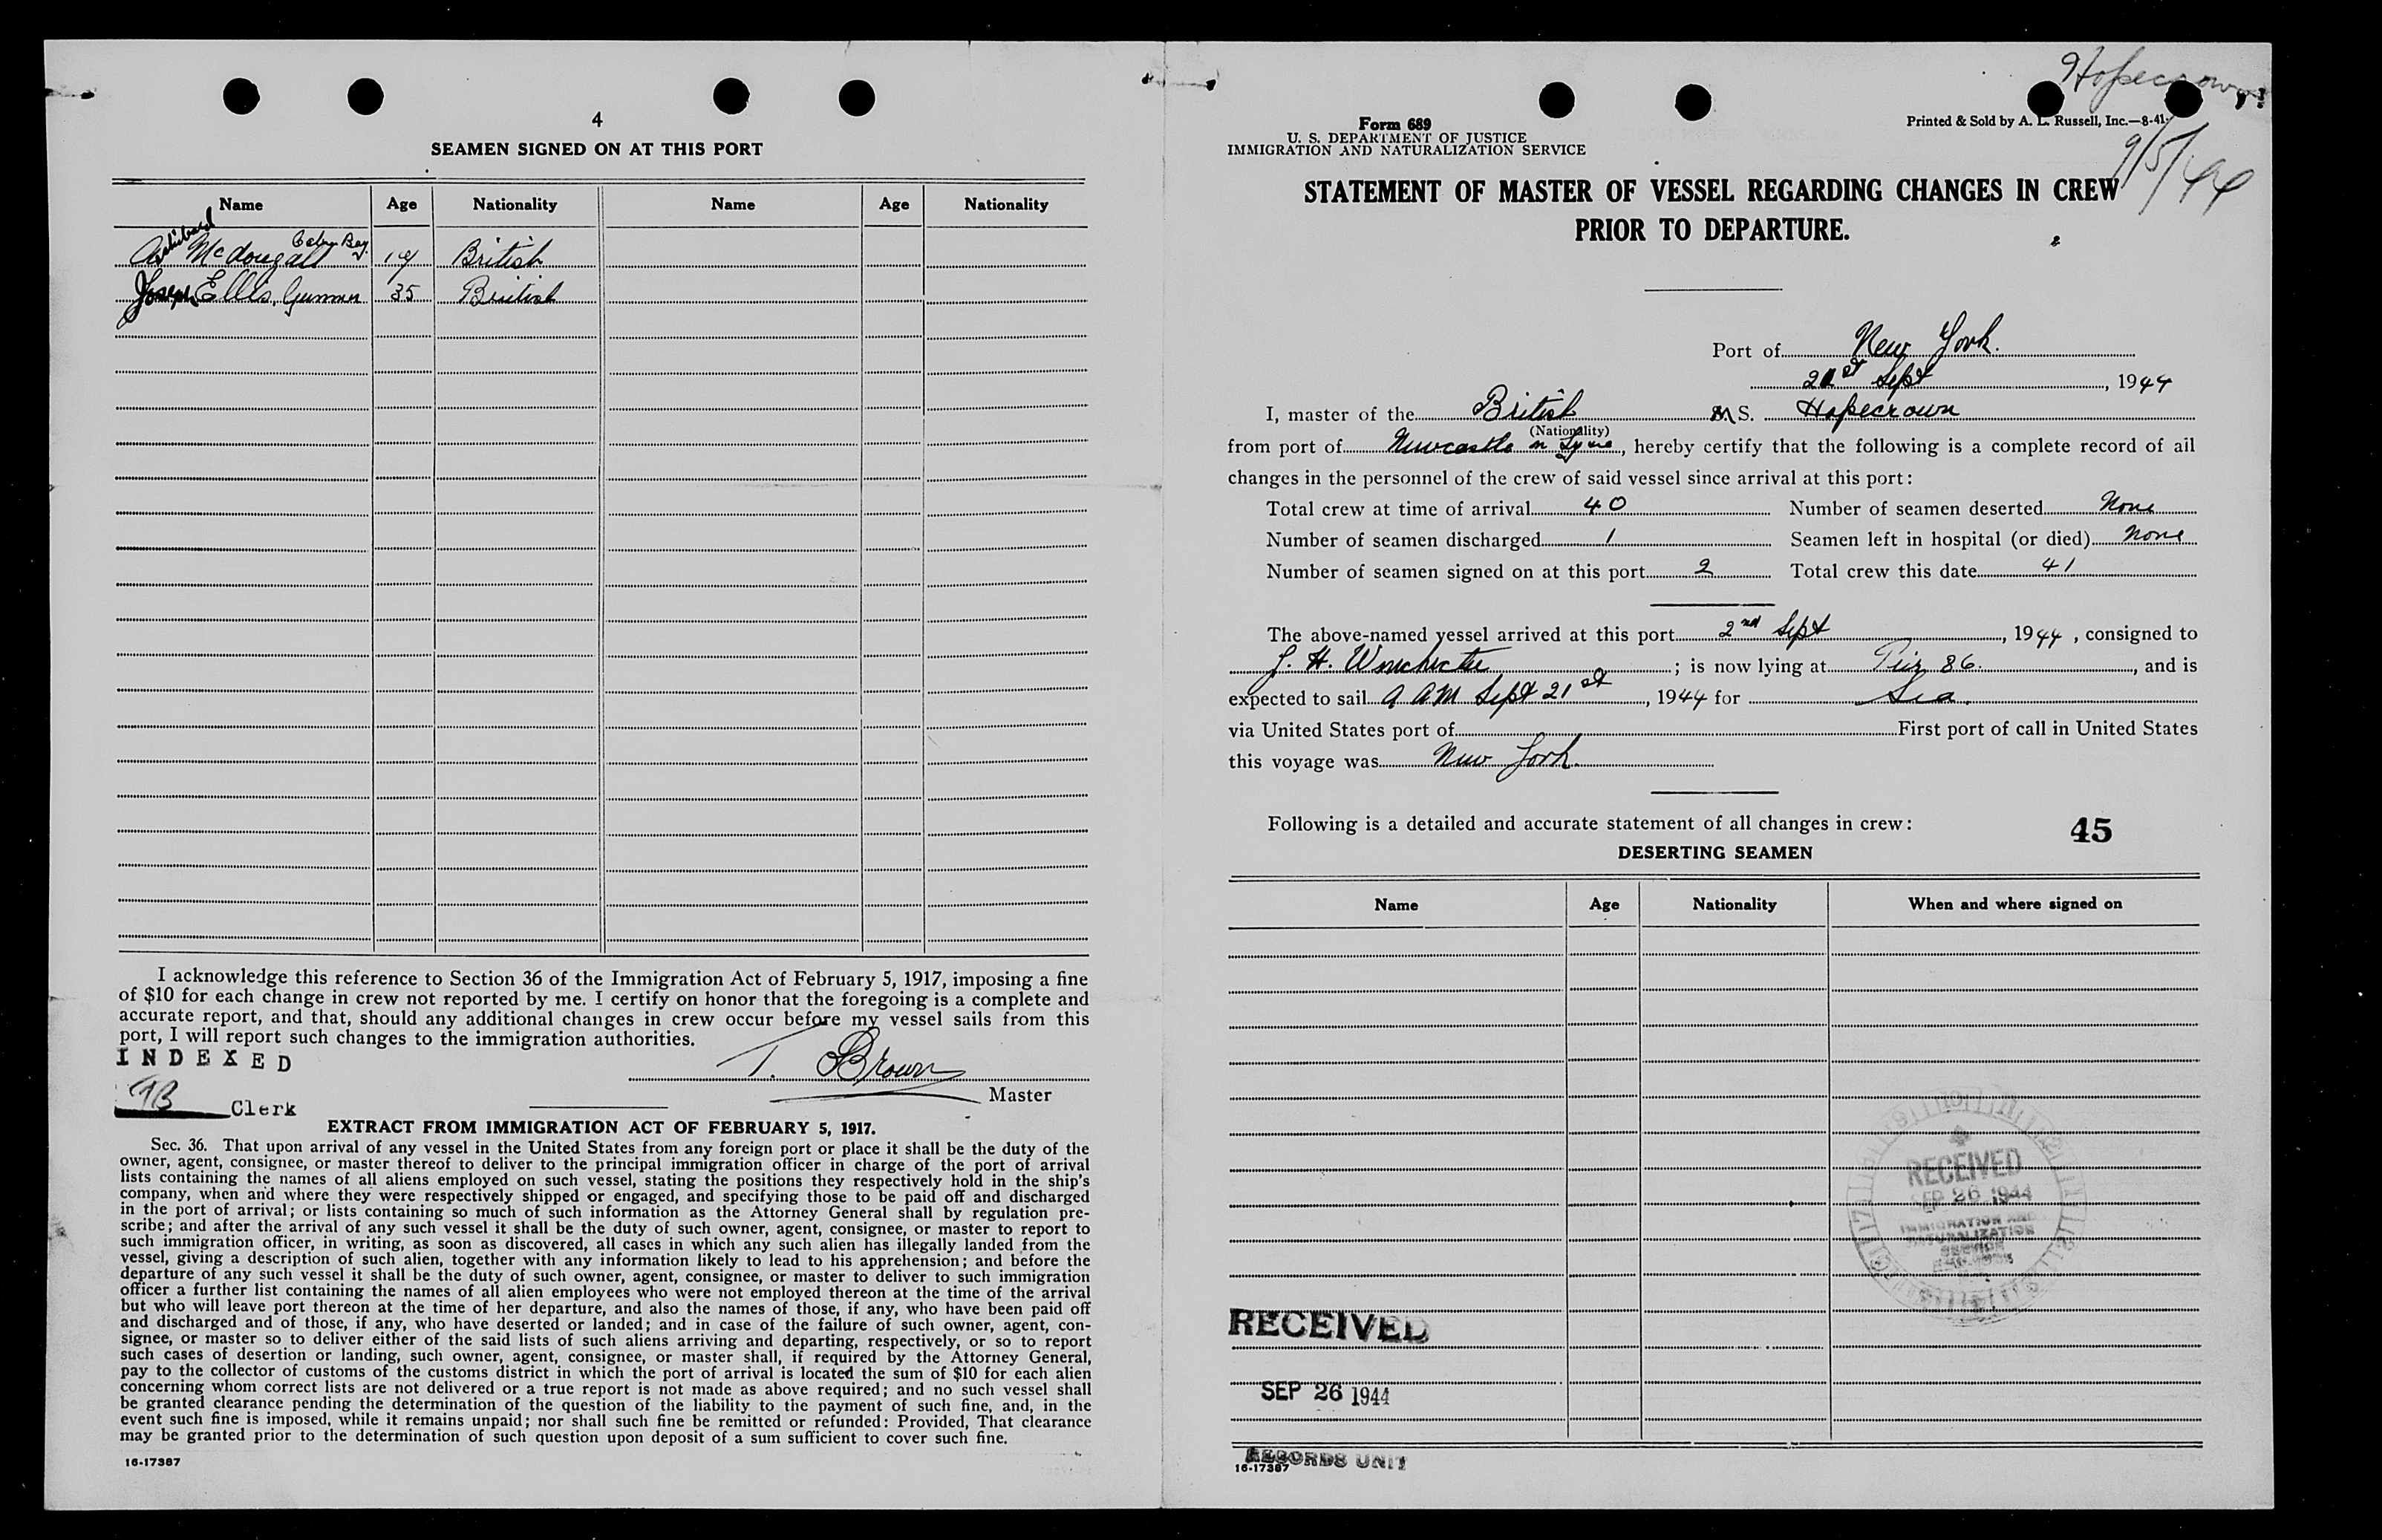 4
SEAMEN SIGNED ON AT THIS PORT
Name Age Nationality Name Age Nationality
Archibald McDougall Cabin Boy 19 British
Joseph Ellis, Gunner 35 British
I acknowledge this reference to Section 36 of the Immigration Act of February 5, 1917, imposing a fine
of $10 for each change in crew not reported by me. I certify on honor that the foregoing is a complete and
accurate report, and that, should any additional changes in crew occur before my vessel sails from this
port, I will report such changes to the immigration authorities.
INDEXED
T. Brown
Master
Clerk
EXTRACT FROM IMMIGRATION ACT OF FEBRUARY 5, 1917.
Sec. 36. That upon arrival of any vessel in the United States from any foreign port or place it shall be the duty of the
owner, agent, consignee, or master thereof to deliver to the principal immigration officer in charge of the port of arrival
lists containing the names of all aliens employed on such vessel, stating the positions they respectively hold in the ship's
company, when and where they were respectively shipped or engaged, and specifying those to be paid off and discharged
in the port of arrival; or lists containing so much of such information as the Attorney General shall by regulation pre-
scribe; and after the arrival of any such vessel it shall be the duty of such owner, agent, consignee, or master to report to
such immigration officer, in writing, as soon as discovered, all cases in which any such alien has illegally landed from the
vessel, giving a description of such alien, together with any information likely to lead to his apprehension; and before the
departure of any such vessel it shall be the duty of such owner, agent, consignee, or master to deliver to such immigration
officer a further list containing the names of all alien employees who were not employed thereon at the time of the arrival
but who will leave port thereon at the time of her departure, and also the names of those, if any, who have been paid off
and discharged and of those, if any, who have deserted or landed; and in case of the failure of such owner, agent, con-
signee, or master so to deliver either of the said lists of such aliens arriving and departing, respectively, or so to report
such cases of desertion or landing, such owner, agent, consignee, or master shall, if required by the Attorney General,
pay to the collector of customs of the customs district in which the port of arrival is located the sum of $10 for each alien
concerning whom correct lists are not delivered or a true report is not made as above required; and no such vessel shall
be granted clearance pending the determination of the question of the liability to the payment of such fine, and, in the
event such fine is imposed, while it remains unpaid; nor shall such fine be remitted or refunded: Provided, That clearance
may be granted prior to the determination of such question upon deposit of a sum sufficient to cover such fine.
16-17387
Hopecrown
9/5/44
Form 689
U. S. DEPARTMENT OF JUSTICE
IMMIGRATION AND NATURALIZATION SERVICE
Printed & Sold by A. L. Russell, Inc.—8-41
STATEMENT OF MASTER OF VESSEL REGARDING CHANGES IN CREW
PRIOR TO DEPARTURE.
Port of New York.
21st Sept, 1944
I, master of the British M S. Hopecrown
(Nationality)
from port of Newcastle on Tyne, hereby certify that the following is a complete record of all
changes in the personnel of the crew of said vessel since arrival at this port:
Total crew at time of arrival 40 Number of seamen deserted None
Number of seamen discharged 1 Seamen left in hospital (or died) None
Number of seamen signed on at this port 2 Total crew this date 41
The above-named vessel arrived at this port 2nd Sept, 1944, consigned to
J. H. Winchester; is now lying at Pier 86., and is
expected to sail 9 AM Sept 21st, 1944 for Sea.
via United States port of First port of call in United States
this voyage was New York.
Following is a detailed and accurate statement of all changes in crew:
45
DESERTING SEAMEN
Name Age Nationality When and where signed on
RECEIVED
SEP 26 1944
IMMIGRATION AND
NATURALIZATION
SERVICE
RECEIVED
SEP 26 1944
RECORDS UNIT
16-17387